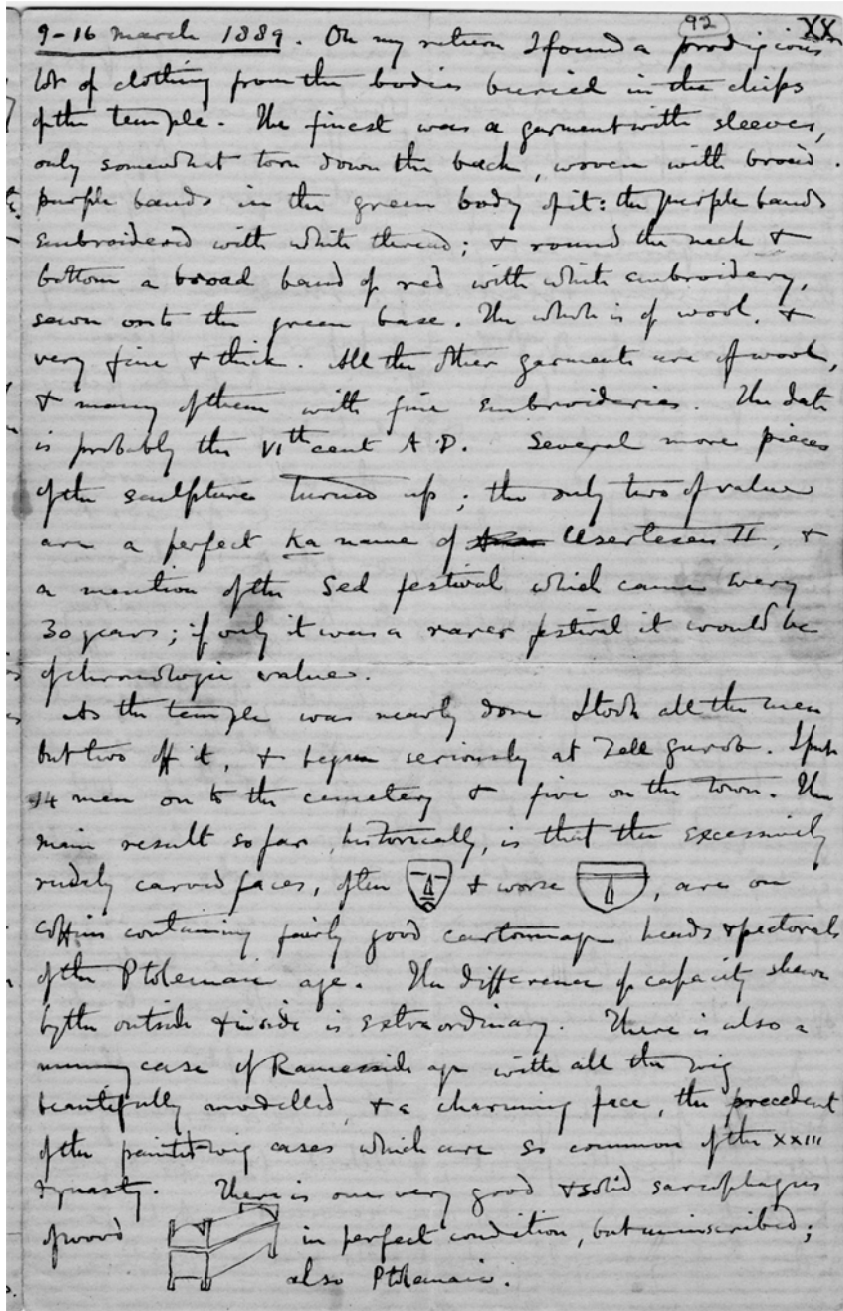 92 XX
9-16 March 1889. On my return I found a prodigious
lot of clothing from the bodies buried in the chips
of the temple. The finest was a garment with sleeves,
only somewhat torn down the back, woven with broad
purple bands in the green body of it: the purple bands
embroidered with white thread; & round the neck &
bottom a broad band of red with white embroidery,
sewn onto the green base. The whole is of wool, &
very fine & thick. All the other garments are of wool,
& many of them with fine embroideries. The date
is probably the VIth cent A.D. Several more pieces
of the sculpture turned up; the only two of value
are a perfect Ka name of Usertesen II, &
a mention of the Sed festival which came every
30 years; if only it was a rarer festival it would be
of chronologic value.
As the temple was nearly done I took all the men
but two off it, & began seriously at Tell Gurob. I put
14 men on to the cemetery & five on the town. The
main result so far, historically, is that the excessively
rudely carved faces, often & worse , are on
coffins containing fairly good cartonnage heads & pectorals
of the Ptolemaic age. The difference of capacity shewn
by the outside & inside is extraordinary. There is also a
mummy case of Ramesside age with all the wig
beautifully modelled, & a charming face, the precedent
of the painted-wig cases which are so common of the XXIII
dynasty. There is one very good & solid sarcophagus
of wood in perfect condition, but uninscribed;
also Ptolemaic.